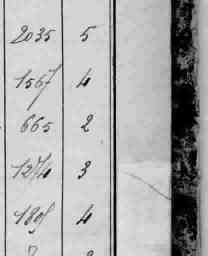 2035 5
1567 4
665 2
1274 3
1805 4